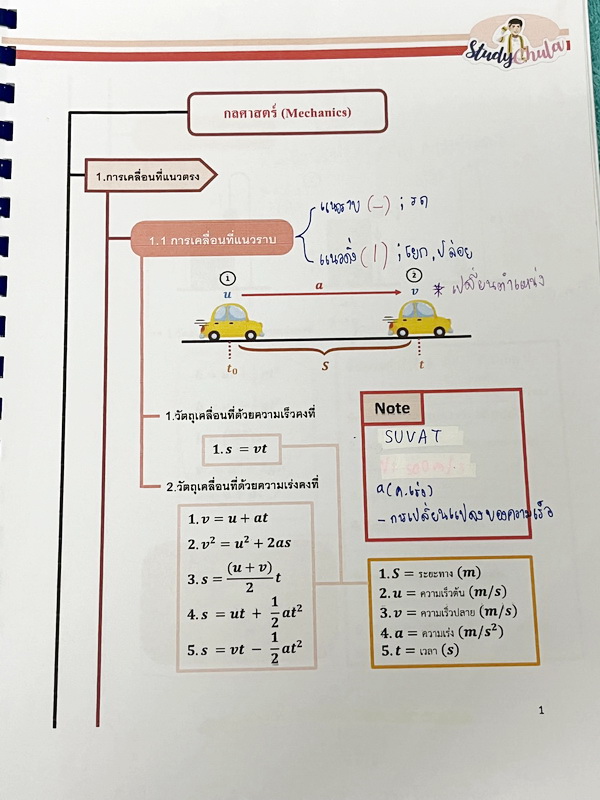 StudyChula
กลศาสตร์ (Mechanics)
1.การเคลื่อนที่แนวตรง
แนวราบ (—) ; รถ
1.1 การเคลื่อนที่แนวราบ
แนวดิ่ง ( | ) ; โยก, ปล่อย
1 2
u a v * เปลี่ยนตำแหน่ง
t₀ s t
1.วัตถุเคลื่อนที่ด้วยความเร็วคงที่
1. s = vt
2.วัตถุเคลื่อนที่ด้วยความเร่งคงที่
1. v = u + at
2. v² = u² + 2as
3. s = (u + v)/2 t
4. s = ut + 1/2 at²
5. s = vt − 1/2 at²
Note
SUVAT
a (ค.เร่ง)
- การเปลี่ยนแปลงของความเร็ว
1. S = ระยะทาง (m)
2. u = ความเร็วต้น (m/s)
3. v = ความเร็วปลาย (m/s)
4. a = ความเร่ง (m/s²)
5. t = เวลา (s)
1